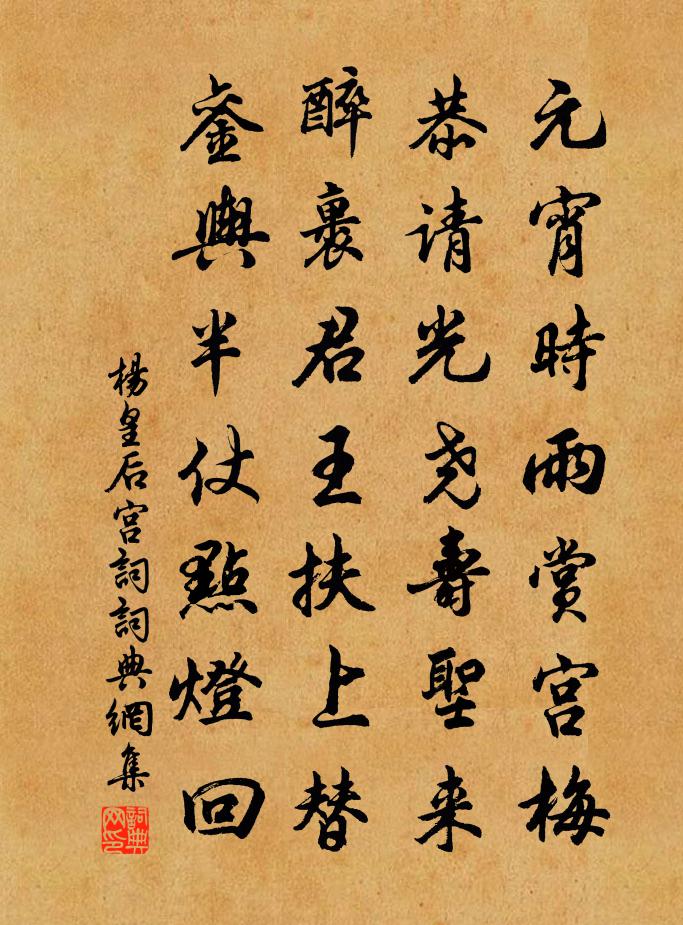 元宵時雨賞宫梅
恭请光尧壽聖来
醉裏君王扶上替
銮輿半仗點燈回
楊皇后宫詞詞典網集
詞典网印